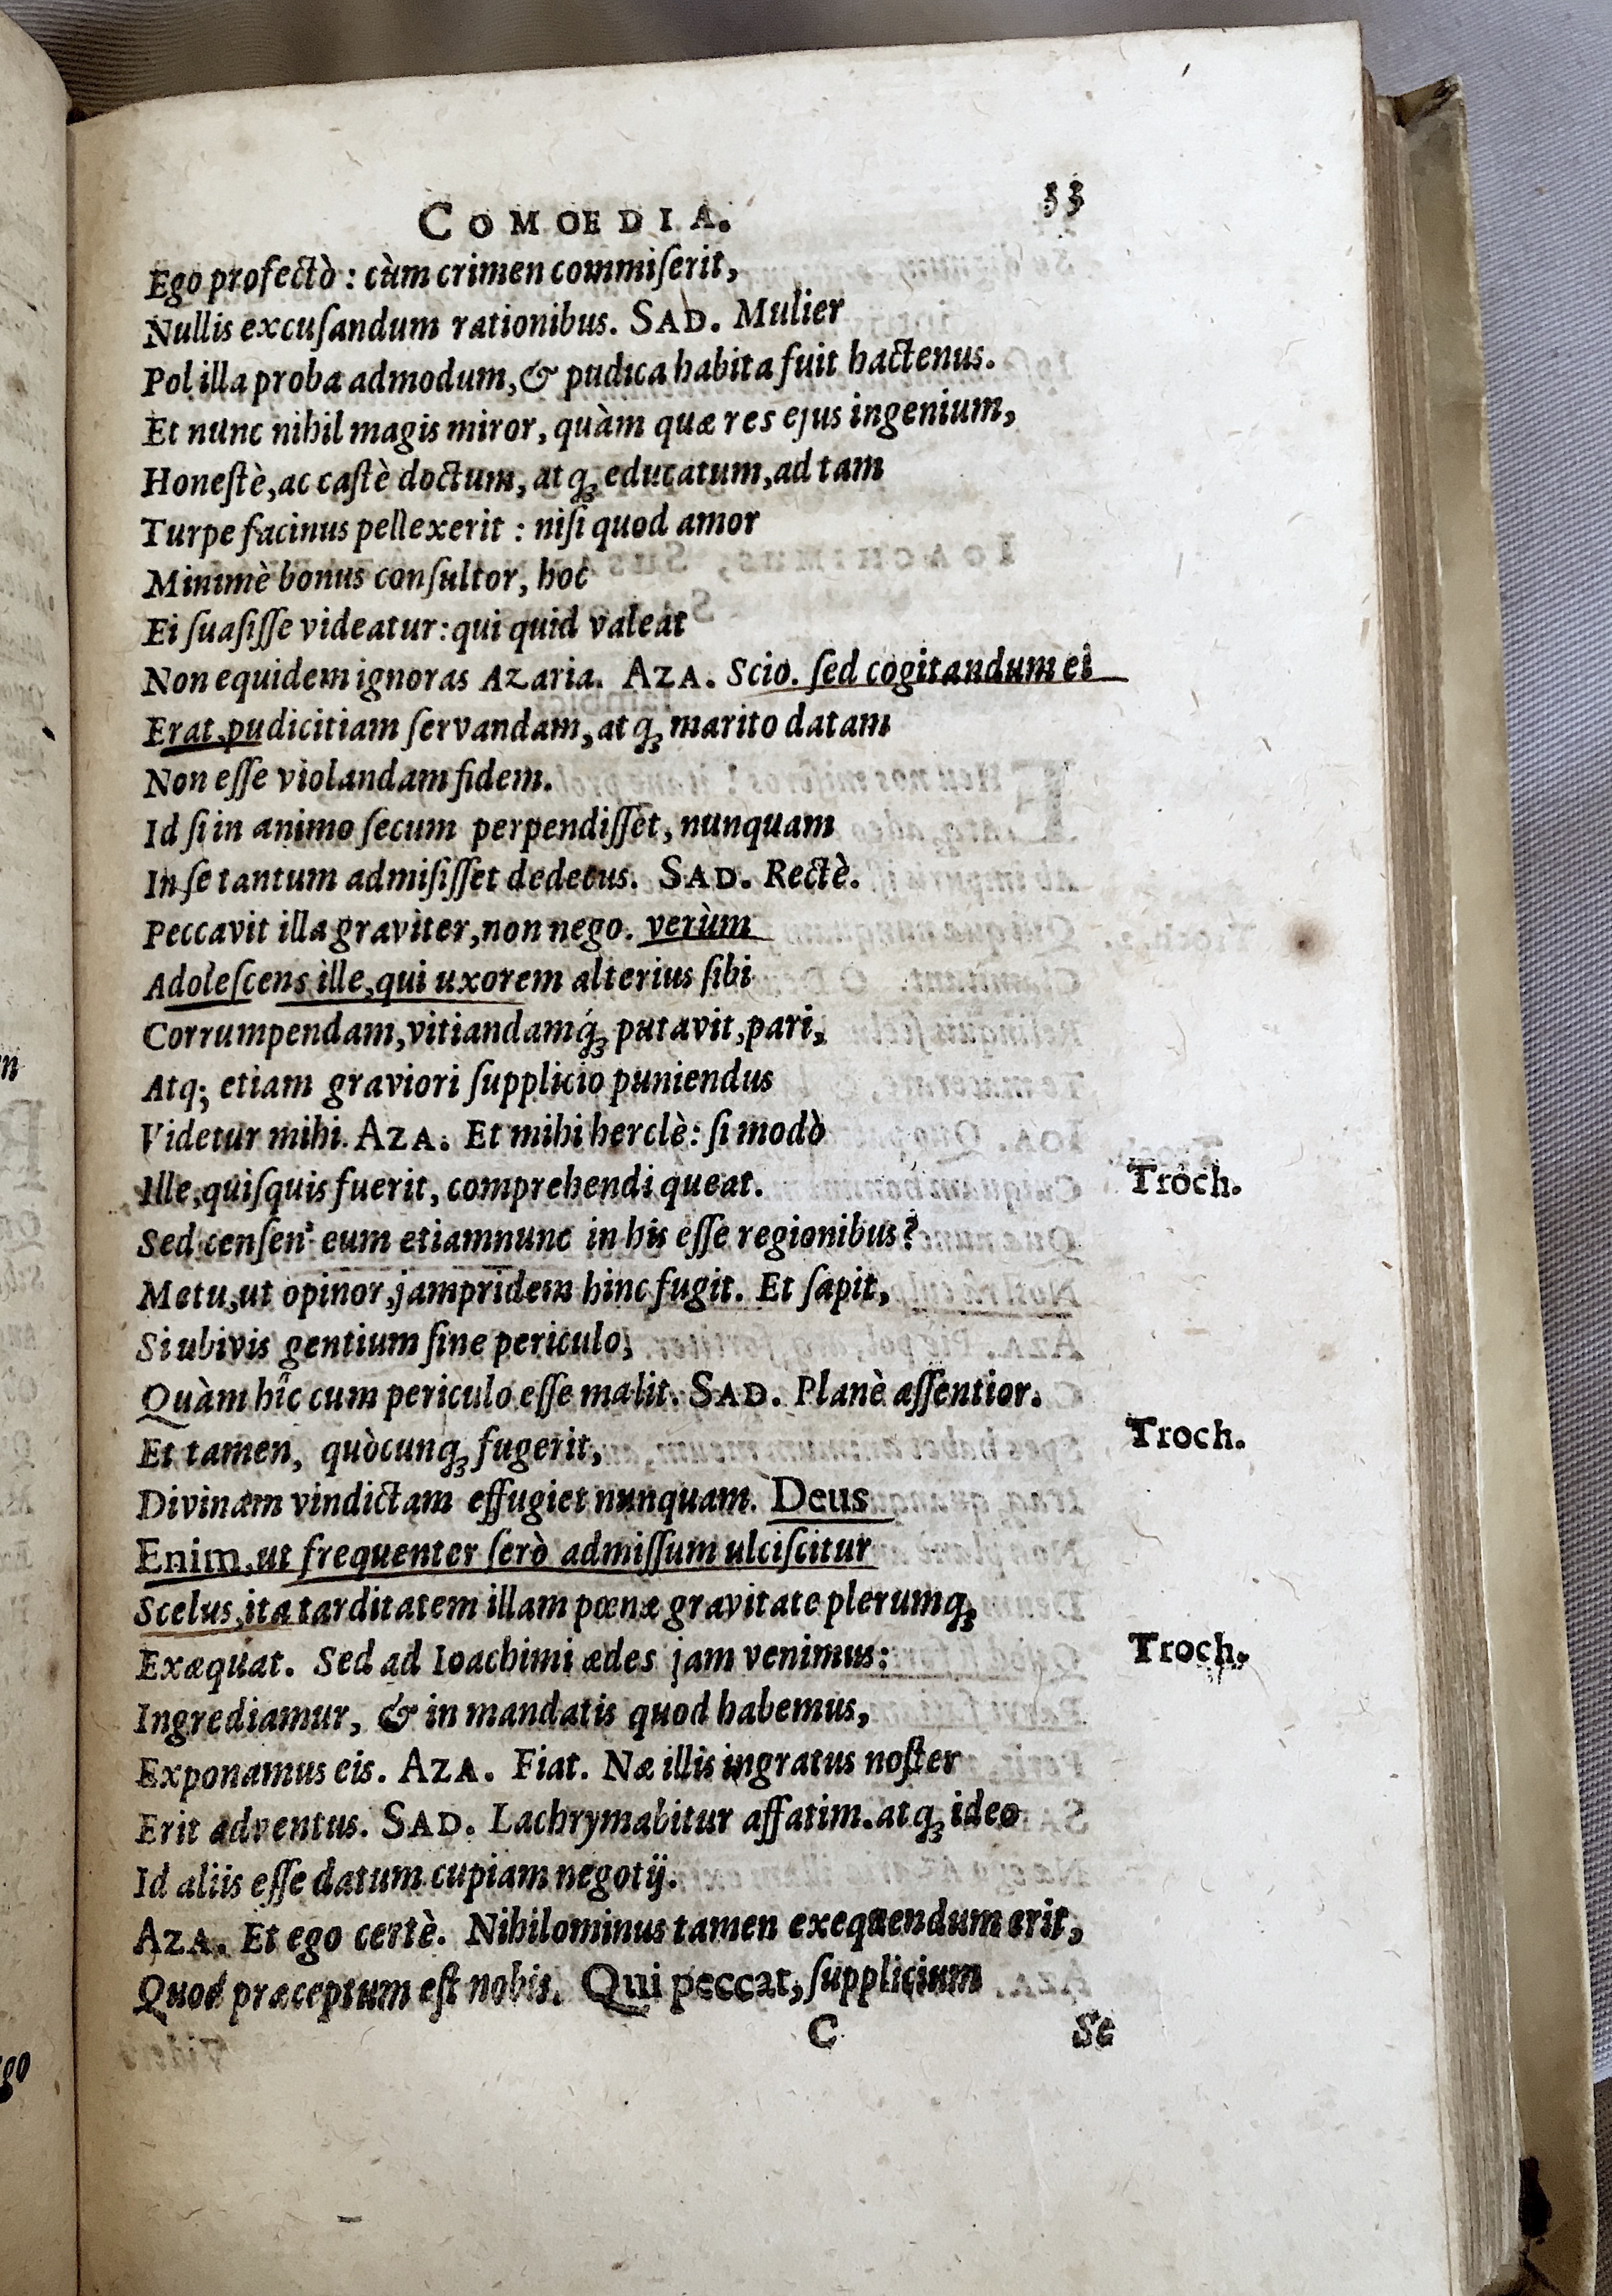 COMOEDIA. 33
Ego profectò : cùm crimen commiſerit,
Nullis excuſandum rationibus. SAD. Mulier
Pol illa proba admodum, & pudica habita fuit hactenus.
Et nunc nihil magis miror, quàm quæ res ejus ingenium,
Honeſtè, ac caſtè doctum, atq; educatum, ad tam
Turpe facinus pellexerit : niſi quod amor
Minimè bonus conſultor, hoc
Ei ſuaſiſſe videatur: qui quid valeat
Non equidem ignoras Azaria. AZA. Scio. ſed cogitandum ei
Erat, pudicitiam ſervandam, atq; marito datam
Non eſſe violandam fidem.
Id ſi in animo ſecum perpendiſſet, nunquam
In ſe tantum admiſiſſet dedecus. SAD. Rectè.
Peccavit illa graviter, non nego. verùm
Adoleſcens ille, qui uxorem alterius ſibi
Corrumpendam, vitiandamq́; putavit, pari,
Atq; etiam graviori ſupplicio puniendus
Videtur mihi. AZA. Et mihi herclè: ſi modò
Ille, quiſquis fuerit, comprehendi queat. Troch.
Sed cenſen' eum etiamnunc in his eſſe regionibus?
Metu, ut opinor, jampridem hinc fugit. Et ſapit,
Si ubivis gentium ſine periculo,
Quàm hîc cum periculo eſſe malit. SAD. Planè aſſentior.
Et tamen, quòcunq; fugerit, Troch.
Divinam vindictam effugiet nunquam. Deus
Enim, ut frequenter ſerò admiſſum ulciſcitur
Scelus, ita tarditatem illam pœnæ gravitate plerumq;
Exæquat. Sed ad Ioachimi ædes jam venimus: Troch.
Ingrediamur, & in mandatis quod habemus,
Exponamus eis. AZA. Fiat. Næ illis ingratus noſter
Erit adventus. SAD. Lachrymabitur affatim. atq; ideo
Id aliis eſſe datum cupiam negotij.
AZA. Et ego certè. Nihilominus tamen exequendum erit,
Quod præceptum eſt nobis. Qui peccat, ſupplicium
C Se